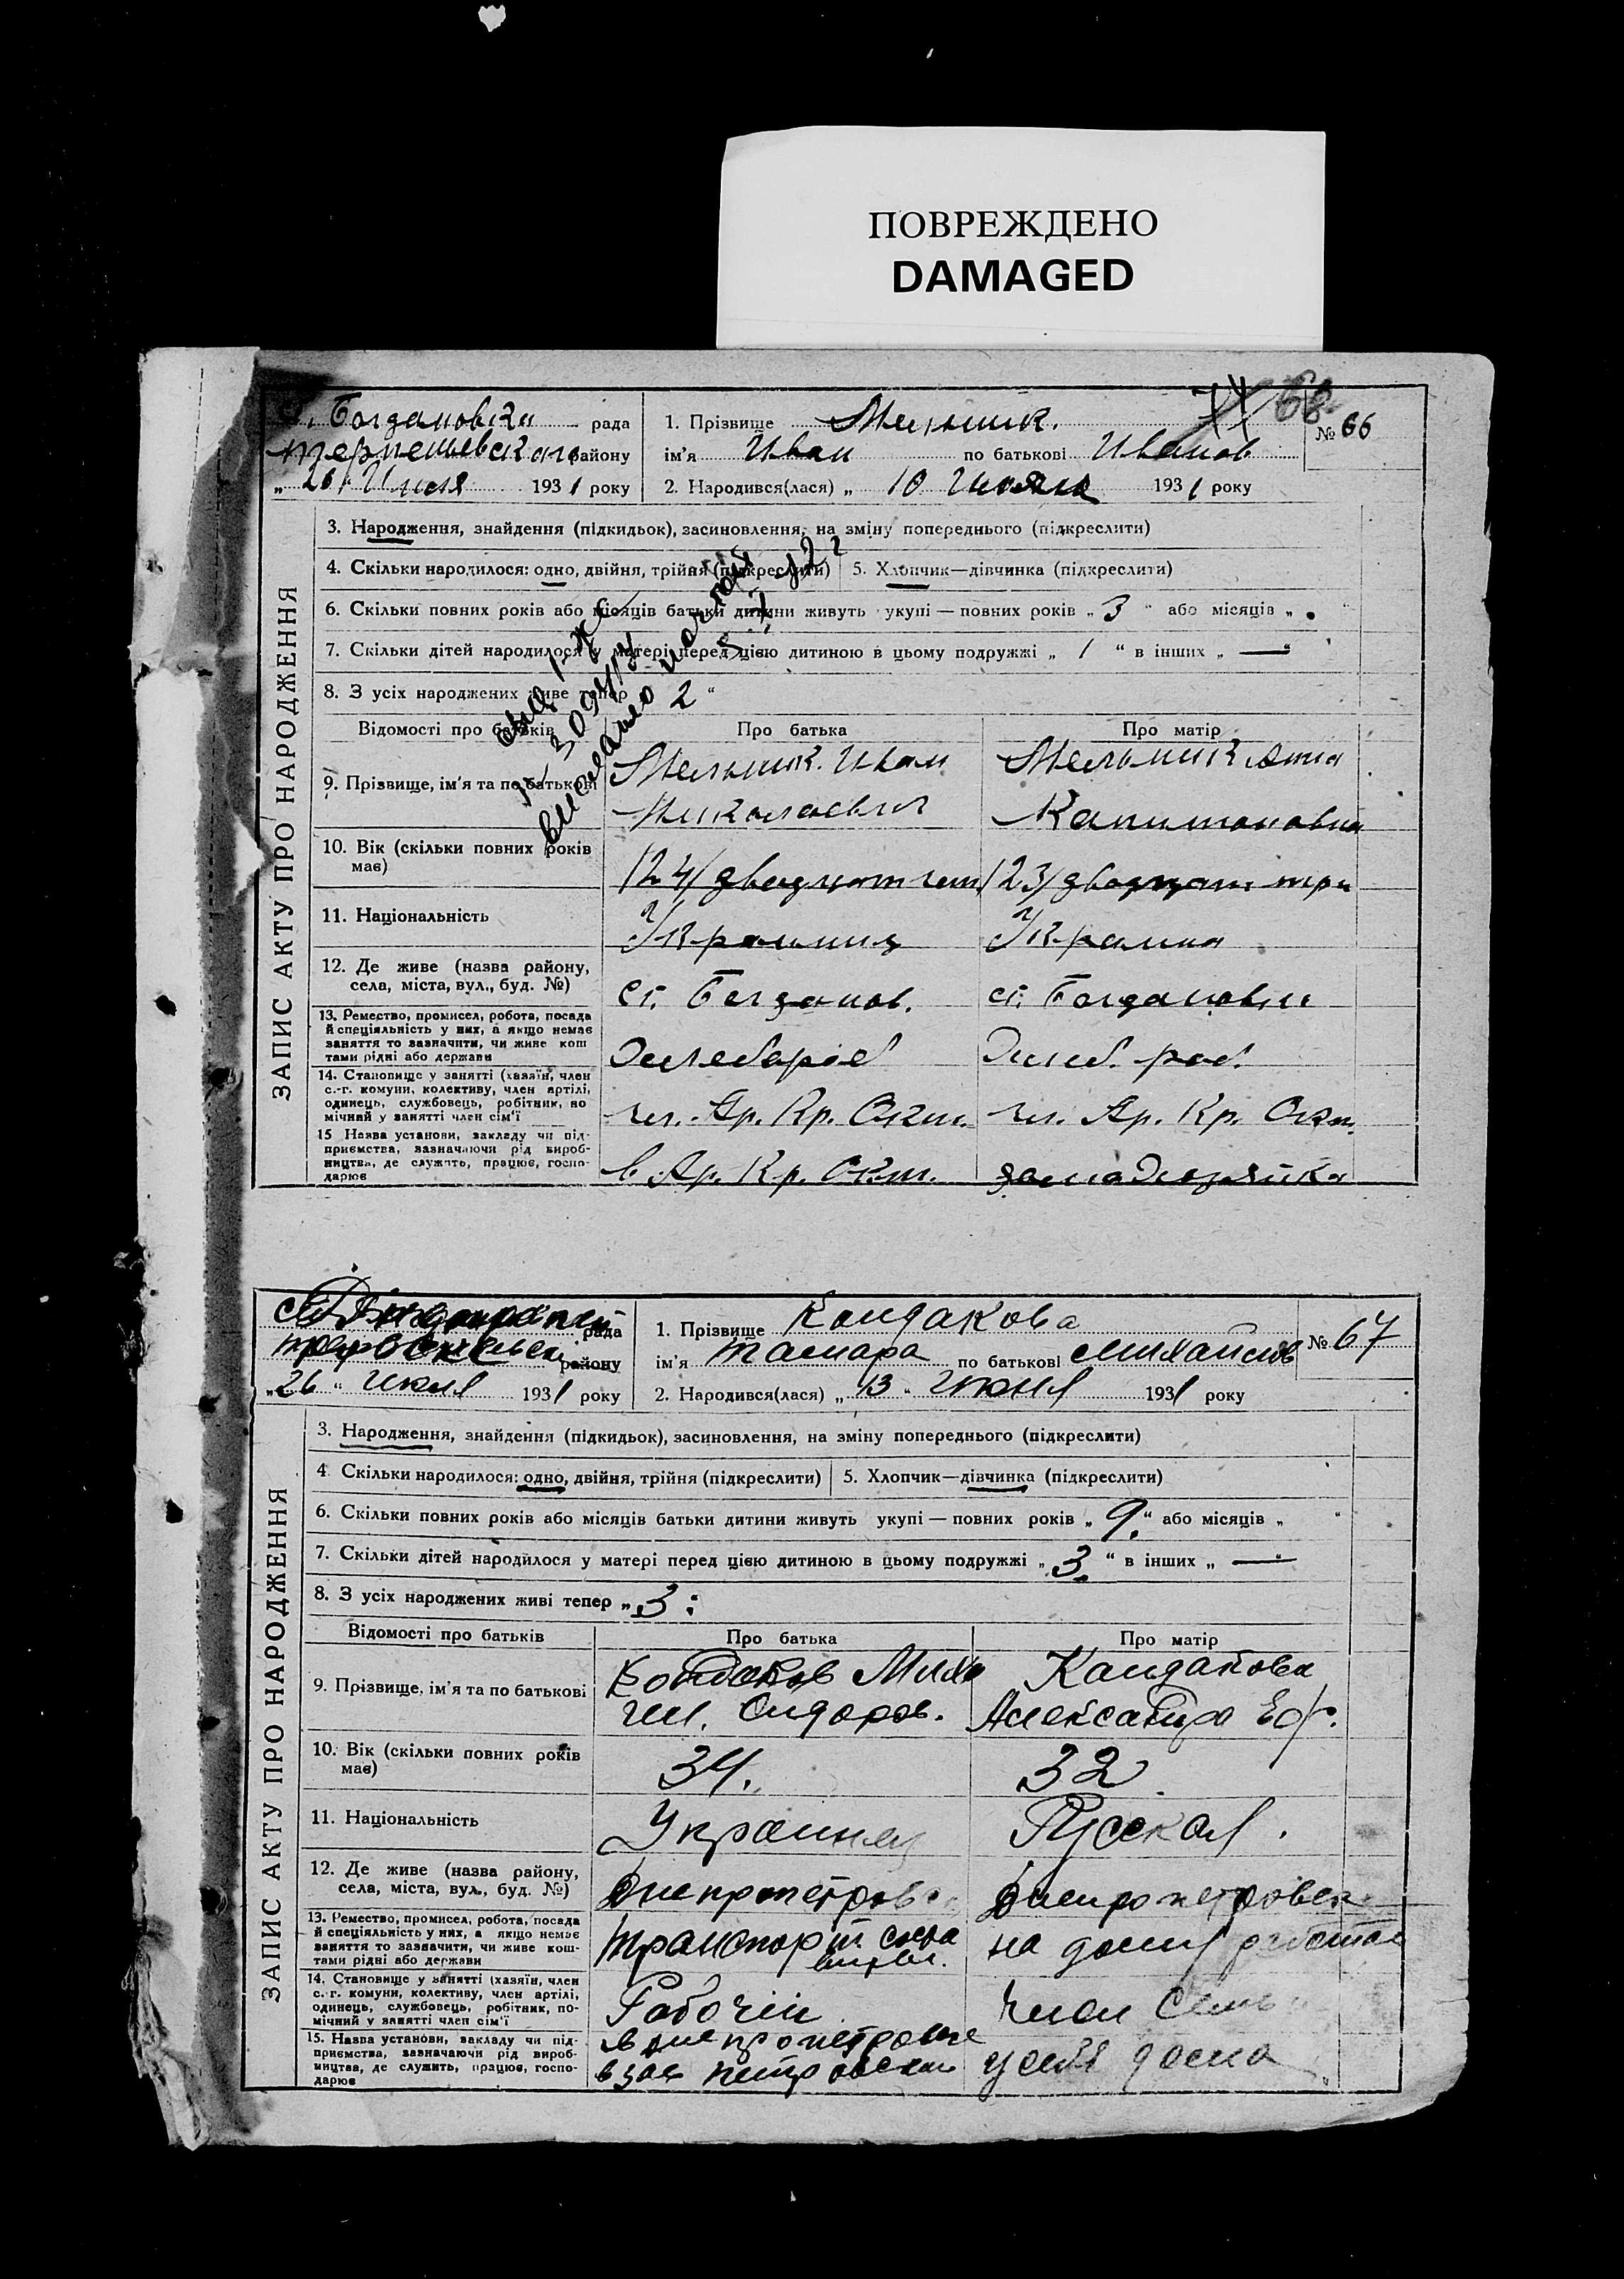 ПОВРЕЖДЕНО
DAMAGED
68
Богдановка рада
району
„ 26 " Июля 1931 року
1. Прізвище Мельник.
ім'я Иван по батькові Иванов
№ 66
2. Народився(лася) „ 10 1931 року
ЗАПИС АКТУ ПРО НАРОДЖЕННЯ
3. Народження, знайдення (підкидьок), засиновлення, на зміну попереднього (підкреслити)
4. Скільки народилося: одно, двійня, трійня (підкреслити) 5. Хлопчик—дівчинка (підкреслити)
6. Скільки повних років або місяців батьки дитини живуть укупі — повних років „ 3 " або місяців „
7. Скільки дітей народилося у матері перед цією дитиною в цьому подружжі „ 1 " в інших „ — "
8. З усіх народжених живе тепер 2 "
Відомості про батьків Про батька Про матір
9. Прізвище, ім'я та по батькові Мельник Иван Мельник Анна
Николаевич Капитоновна
10. Вік (скільки повних років має) /24/ двадцат чет /23/ двадцат три
11. Національність Украинец Украинка
12. Де живе (назва району, села, міста, вул., буд. №) с. Богданов. с. Богдановке
13. Ремество, промисел, робота, посада
й спеціяльність у них, а якщо немає
заняття то зазначити, чи живе кош
тами рідні або держави
14. Становище у занятті (хазяїн, член
с.-г. комуни, колективу, член артілі,
одинець, службовець, робітник, по
мічний у занятті член сім'ї
чл. Ар. Кр. Окт. чл. Ар. Кр. Окт.
15 Назва установи, закладу чи під-
приємства, зазначаючи рід вироб-
ництва, де служить, працює, госпо-
дарює
в Ар. Кр. Окт. домахозяйка
рада
району
„ 26 " июля 1931 року
1. Прізвище Кандакова
ім'я Тамара по батькові Михайлов
№ 67
2. Народився(лася) „ 13 " июня 1931 року
ЗАПИС АКТУ ПРО НАРОДЖЕННЯ
3. Народження, знайдення (підкидьок), засиновлення, на зміну попереднього (підкреслити)
4 Скільки народилося: одно, двійня, трійня (підкреслити) 5. Хлопчик—дівчинка (підкреслити)
6. Скільки повних років або місяців батьки дитини живуть укупі — повних років „ 9. " або місяців „ "
7. Скільки дітей народилося у матері перед цією дитиною в цьому подружжі „ 3. " в інших „ — "
8. З усіх народжених живі тепер „ 3
Відомості про батьків Про батька Про матір
9. Прізвище, ім'я та по батькові Миха Кандакова
ил. Сидоров. Александра Еф.
10. Вік (скільки повних років має) 34. 32
11. Національність Украинец Русская.
12. Де живе (назва району, села, міста, вул., буд. №) Днепропетровск Днепропетровск
13. Ремество, промисел, робота, посада
й спеціяльність у них, а якщо немає
заняття то зазначити, чи живе кош-
тами рідні або держави
Транспорт на дому
14. Становище у занятті (хазяїн, член
с. г. комуни, колективу, член артілі,
одинець, службовець, робітник, по-
мічний у занятті член сім'ї
Рабочий член Семьи
15. Назва установи, закладу чи під-
приємства, зазначаючи рід вироб-
ництва, де служить, працює, госпо-
дарює
в Днепропетровске
петровскаи у себя дома